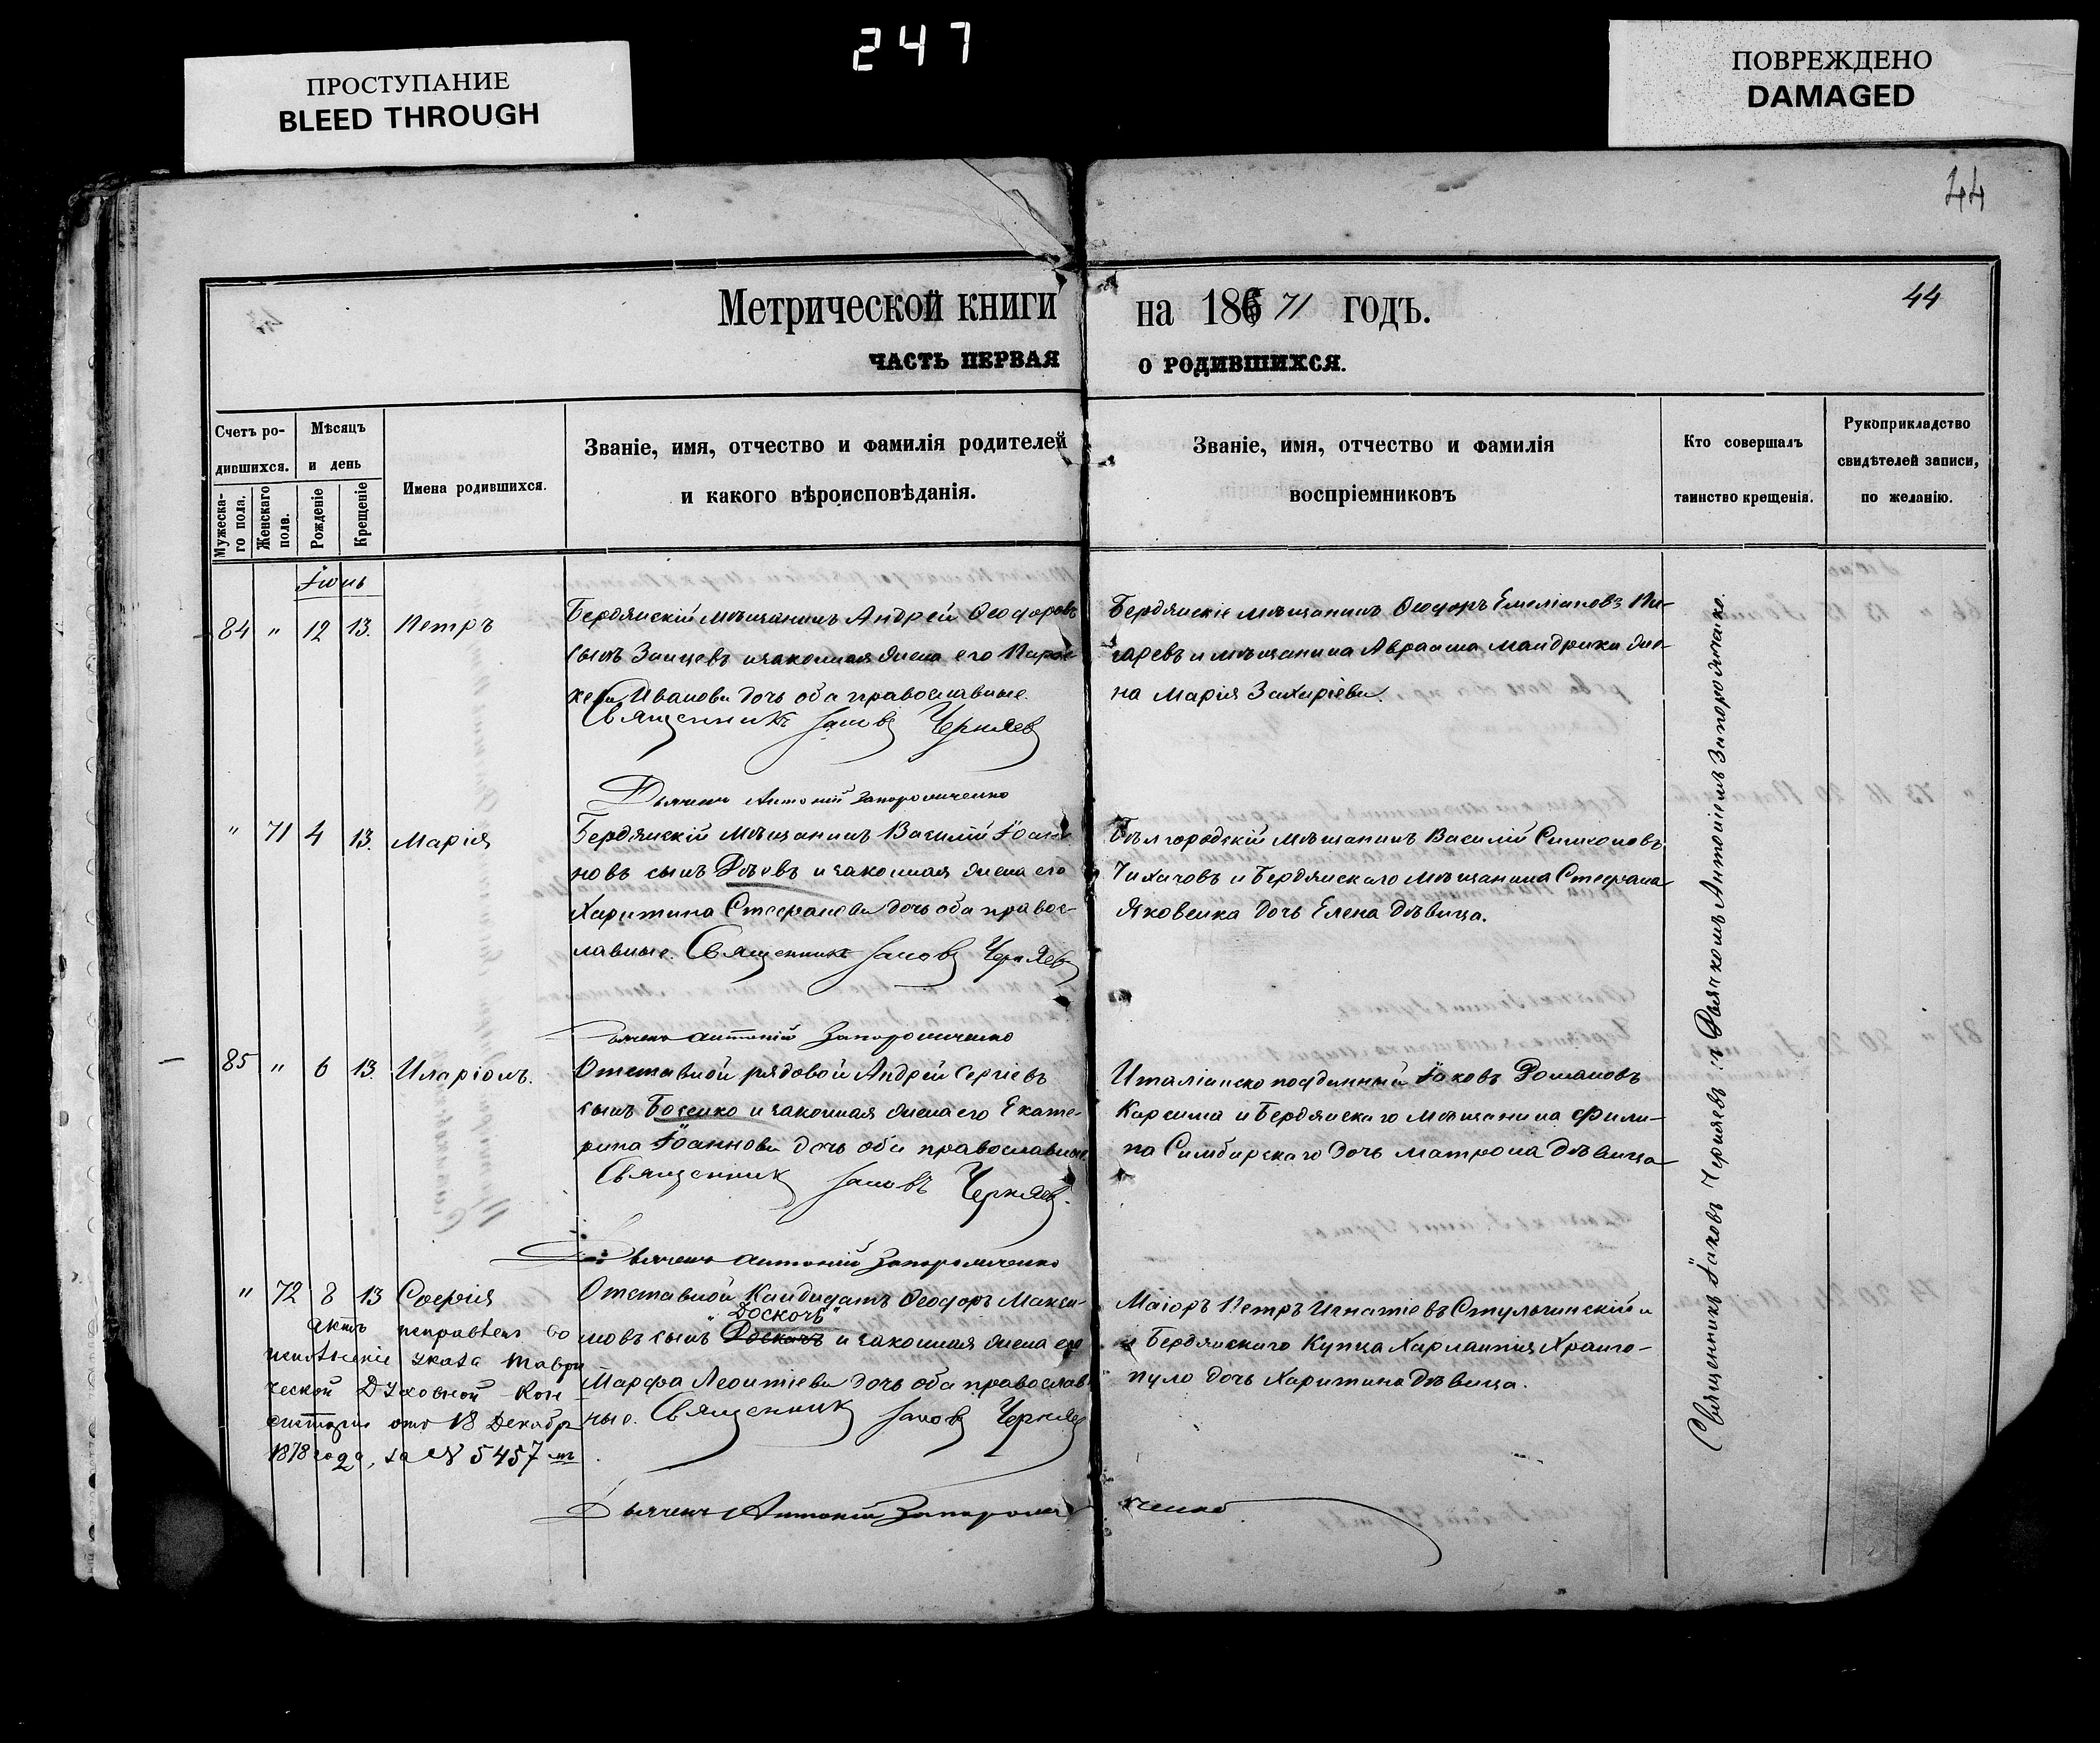 247
ПРОСТУПАНИЕ
BLEED THROUGH
ПОВРЕЖДЕНО
DAMAGED
44
Метрической книги на 186 71 годъ.
44
ЧАСТЬ ПЕРВАЯ О РОДИВШИХСЯ.
Счетъ ро-
дившихся.
Мужеска-
го пола.
Женскаго
пола.
Мѣсяцъ
и день
Рожденіе
Крещеніе
Имена родившихся.
Званіе, имя, отчество и фамилія родителей
и какого вѣроисповѣданія.
Званіе, имя, отчество и фамилія
воспріемниковъ
Кто совершалъ
таинство крещенія.
Рукоприкладство
свидѣтелей записи,
по желанію.
Іюнь
84 " 12 13. Петръ
Бердянскій мѣщанинъ Андрей Ѳеодоровъ
сынъ Заицевъ и законная жена его Парас-
кева Иванова дочь оба православные.
Священникъ Іаковъ Черняевъ
Дьячекъ Антоній Запорожченко
Бердянскіе мѣщанинъ Ѳеодоръ Емеліановъ Пи-
гаревъ и мѣщанина Авраама Мандрики жен-
на Марія Захаріева.
" 71 4 13. Марія
Бердянскій мѣщанинъ Василій Іоан-
новъ сынъ Рѣевъ и законная жена его
Харитина Стефанова дочь оба правос-
лавные. Священникъ Іаковъ Черняевъ
Дьячекъ Антоній Запорожченко
Бѣлгородскій мѣщанинъ Василій Симеоновъ
Чихачовъ и Бердянскаго мѣщанина Стефана
Яковенка дочь Елена дѣвица.
85 " 6 13. Иларіонъ.
Отставной рядовой Андрей Сергіевъ
сынъ Босенко и законная жена его Екате-
рина Іоаннова дочь оба православные
Священникъ Іаковъ Черняевъ.
Дьячекъ Антоній Запорожченко
Италіанско подданный Іаковъ Романовъ
Карсима и Бердянскаго мѣщанина Фили-
па Симбирскаго дочь Матрона дѣвица
" 72 8 13 Софія
Актъ исправленъ во
исполненіе указа Таври
ческой Духовной Кон
систоріи отъ 18 Декабр
1878 года, за № 5457 мъ
Отставной Кандидатъ Ѳеодоръ Макси-
"Доскочъ"
мовъ сынъ Доскачъ и законная жена его
Марфа Леонтіева дочь оба православ
ные. Священникъ Іаковъ Черняев
Дьячекъ Антоній Запорожченко
Маіоръ Петръ Игнатіевъ Стульгинскій и
и Бердянскаго Купца Харлампія Храмго-
пуло дочь Харитина дѣвица.
Священникъ Іаковъ Черняевъ съ Дьячкомъ Антоніемъ Запорожченко.